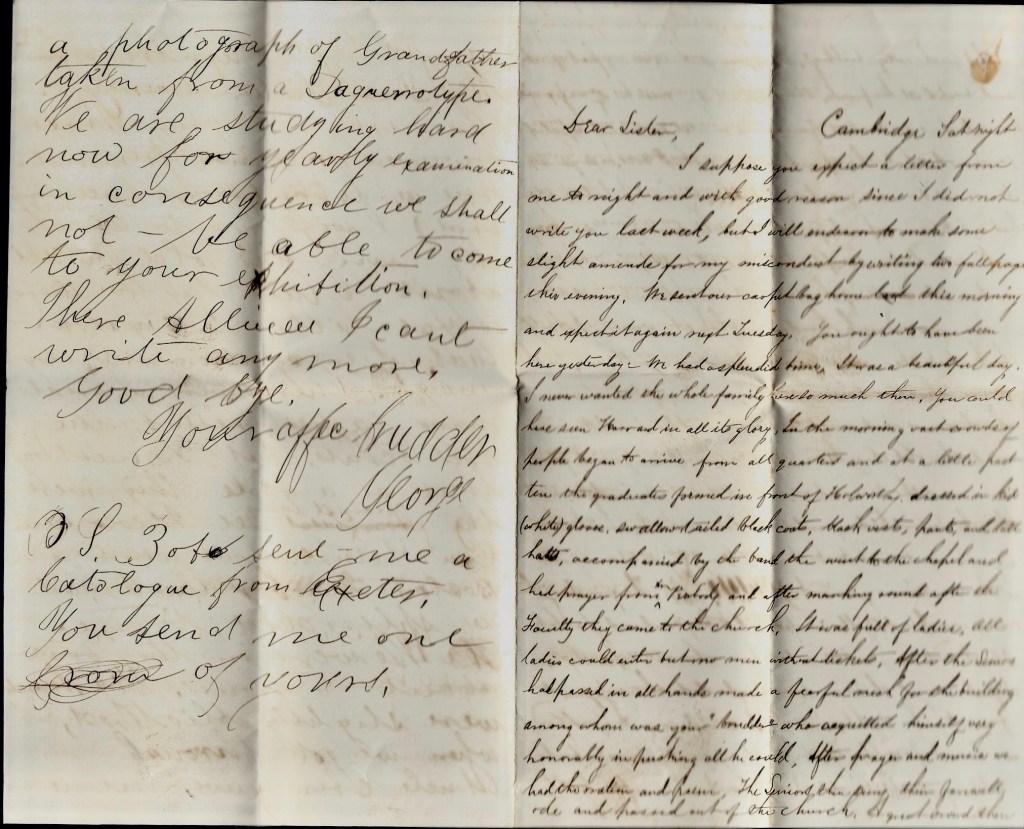 a photograph of Grandfather
taken from a Daguerrotype.
We are studying hard
now for yearly examination
in consequence we shall
not - be able to come
to your exhibition.
There I cant
write any more.
Good bye.
Your affc brudder
George
P S. Bob sent me a
Catologue from Exeter.
You send me one
of yours.
Cambridge Sat night
Dear Sister,
I suppose you expect a letter from
me to night and with good reason since I did not
write you last week, but I will endeavor to make some
slight amende for my misconduct by writing two full pages
this evening. We sent our carpet bag home this morning
and expect it again next Tuesday. You ought to have been
here yesterday - We had a splendid time. It was a beautiful day.
I never wanted the whole family here so much then. You could
have seen Harvard in all its glory. In the morning vast crowds of
people began to arrive from all quarters and at a little past
ten the graduates formed in front of Holworthy, dressed in kid
(white) gloves, swallow tailed black coats, black vests, pants, and tall
hats, accompanied by the band the went to the chapel and
had prayer from Dr Peabody and after marching round after the
Faculty they came to the church. It was full of ladies, all
ladies could enter but no men without tickets. After the Seniors
had passed in all hands made a fearful rush for the building
among whom was your "brudder" who acquitted himself very
honorably in pushing all he could. After prayer and music we
had the oration and poem. The Seniors then sung their
ode and passed out of the church.